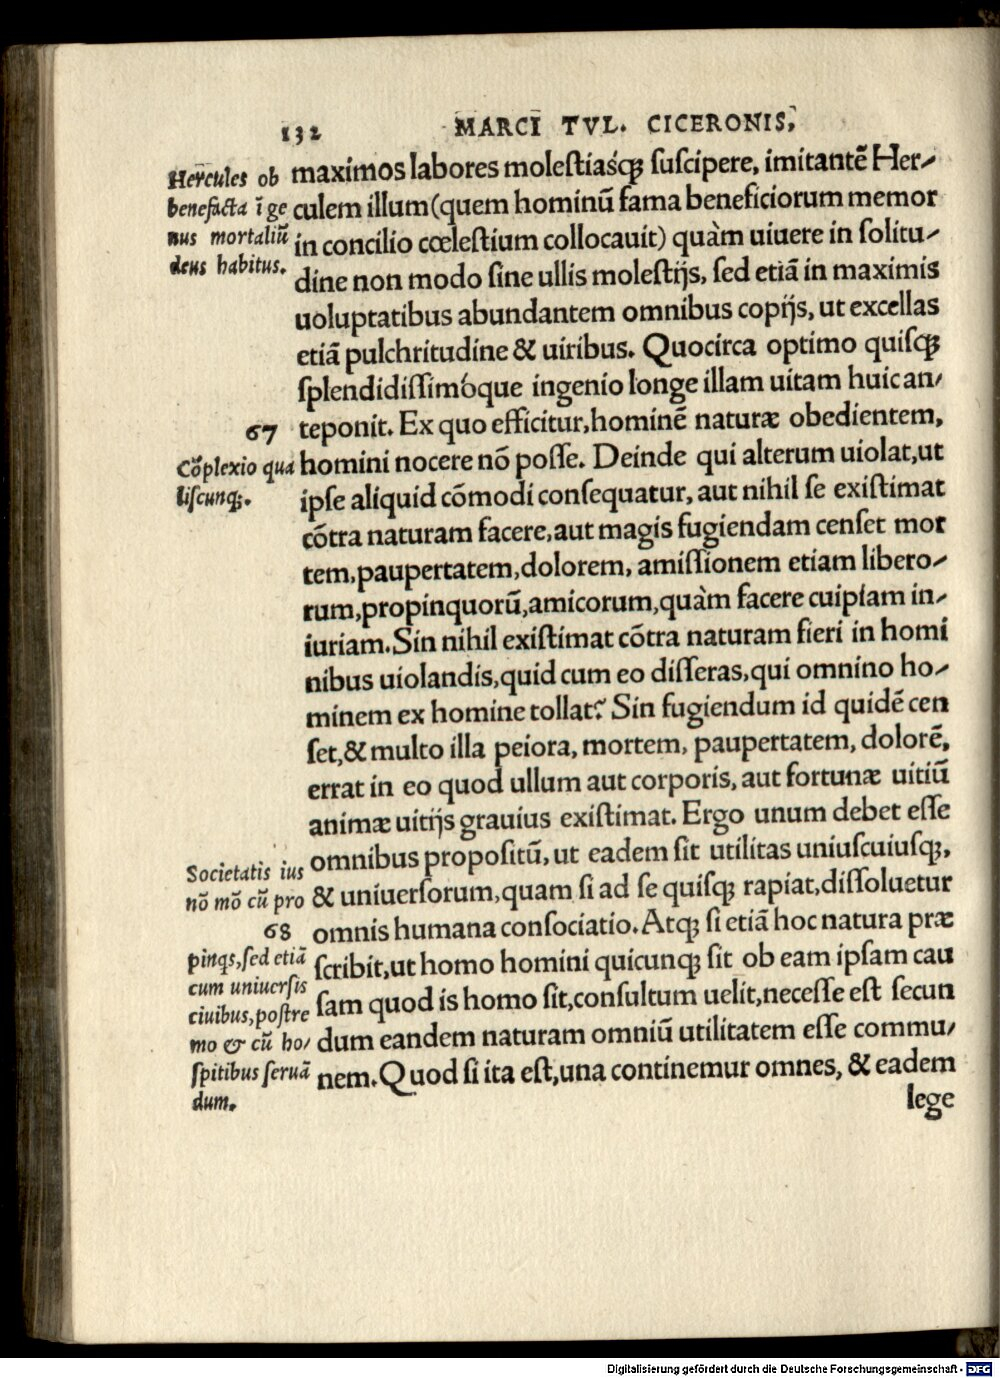 132 MARCI TVL. CICERONIS,
Hercules ob
benefacta ī ge
nus mortaliũ
deus habitus.
maximos labores molestiasq́ꝫ suscipere, imitantẽ Her-
culem illum (quem hominũ fama beneficiorum memor
in concilio cœlestium collocauit) quàm uiuere in solitu-
dine non modo sine ullis molestijs, sed etiã in maximis
uoluptatibus abundantem omnibus copijs, ut excellas
etiã pulchritudine & uiribus. Quocirca optimo quisqꝫ
splendidissimóque ingenio longe illam uitam huic an-
67 teponit. Ex quo efficitur, hominẽ naturæ obedientem,
Cõplexio qua
liscunqꝫ.
homini nocere nõ posse. Deinde qui alterum uiolat, ut
ipse aliquid cõmodi consequatur, aut nihil se existimat
cõtra naturam facere, aut magis fugiendam censet mor
tem, paupertatem, dolorem, amissionem etiam libero-
rum, propinquorũ, amicorum, quàm facere cuipiam in-
iuriam. Sin nihil existimat cõtra naturam fieri in homi
nibus uiolandis, quid cum eo disseras, qui omnino ho-
minem ex homine tollat? Sin fugiendum id quidẽ cen
set, & multo illa peiora, mortem, paupertatem, dolorẽ,
errat in eo quod ullum aut corporis, aut fortunæ uitiũ
animæ uitijs grauius existimat. Ergo unum debet esse
omnibus propositũ, ut eadem sit utilitas uniuscuiusqꝫ,
& uniuersorum, quam si ad se quisqꝫ rapiat, dissoluetur
omnis humana consociatio. Atqꝫ si etiã hoc natura præ
scribit, ut homo homini quicunqꝫ sit ob eam ipsam cau
sam quod is homo sit, consultum uelit, necesse est secun
dum eandem naturam omniũ utilitatem esse commu-
nem. Quod si ita est, una continemur omnes, & eadem
Societatis ius
nõ mõ cũ pro
68
pinqs, sed etiã
cum uniuersis
ciuibus, postre
mo & cũ ho-
spitibus seruã
dum.
lege
Digitalisierung gefördert durch die Deutsche Forschungsgemeinschaft - DFG